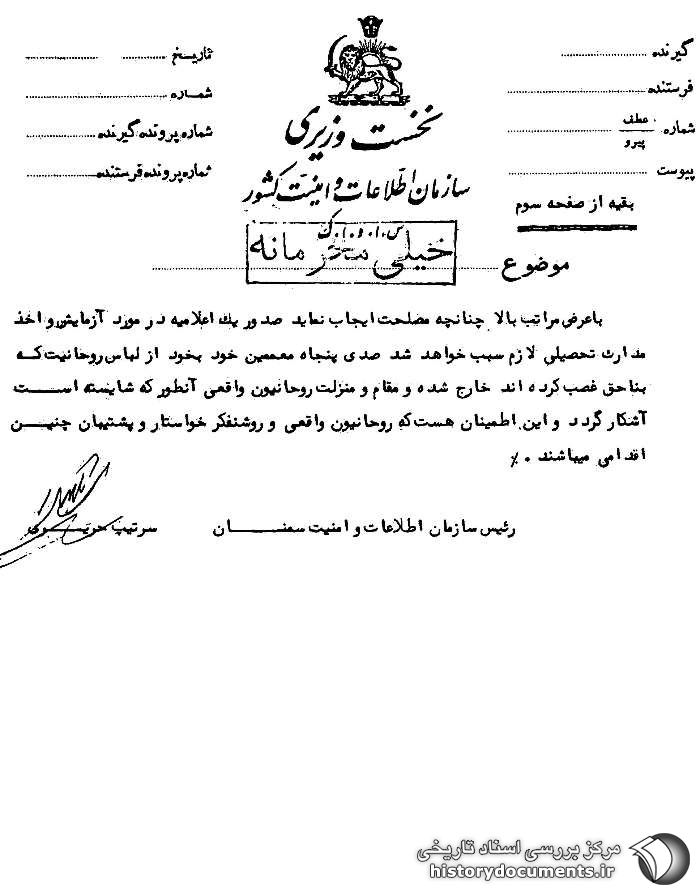 گیرنده
فرستنده
شماره عطف
پیرو
پیوست
بقیه از صفحه سوم
نخست وزیری
سازمان اطلاعات و امنیت کشور
س.ا.و.ا.ک
خیلی محرمانه
تاریخ
شماره
شماره پرونده گیرنده
شماره پرونده فرستنده
موضوع
باعرض مراتب بالا چنانچه مصلحت ایجاب نماید صدور یك اعلامیه در مورد آزمایش و اخذ
مدارك تحصیلی لازم سبب خواهد شد صدی پنجاه معممین خود بخود از لباس روحانیت که
بناحق غصب کرده اند خارج شده و مقام و منزلت روحانیون واقعی آنطور که شایسته است
آشکار گردد و این اطمینان هست که روحانیون واقعی و روشنفکر خواستار و پشتیبان چنین
اقدامی میباشند ٠٪
رئیس سازمان اطلاعات و امنیت سمنان سرتیپ
مرکز بررسی اسناد تاریخی
historydocuments.ir